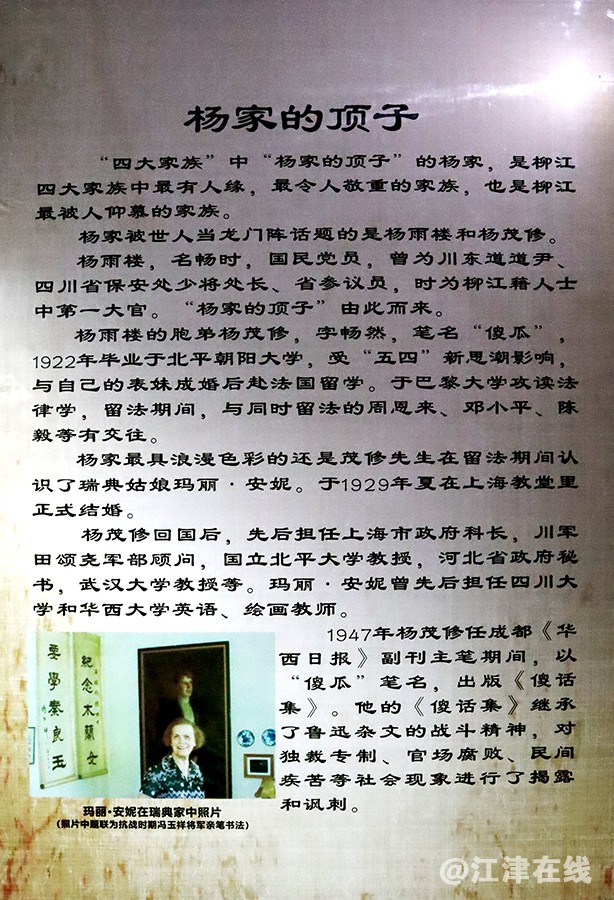 杨家的顶子
“四大家族”中“杨家的顶子”的杨家，是柳江
四大家族中最有人缘，最令人敬重的家族，也是柳江
最被人仰慕的家族。
杨家被世人当龙门阵话题的是杨雨楼和杨茂修。
杨雨楼，名畅时，国民党员，曾为川东道道尹、
四川省保安处少将处长、省参议员，时为柳江籍人士
中第一大官。“杨家的顶子”由此而来。
杨雨楼的胞弟杨茂修，字畅然，笔名“傻瓜”，
1922年毕业于北平朝阳大学，受“五四”新思潮影响，
与自己的表妹成婚后赴法国留学。于巴黎大学攻读法
律学，留法期间，与同时留法的周恩来、邓小平、陈
毅等有交往。
杨家最具浪漫色彩的还是茂修先生在留法期间认
识了瑞典姑娘玛丽·安妮。于1929年夏在上海教堂里
正式结婚。
杨茂修回国后，先后担任上海市政府科长，川军
田颂尧军部顾问，国立北平大学教授，河北省政府秘
书，武汉大学教授等。玛丽·安妮曾先后担任四川大
学和华西大学英语、绘画教师。
1947年杨茂修任成都《华
西日报》副刊主笔期间，以
“傻瓜”笔名，出版《傻话
集》。他的《傻话集》继承
了鲁迅杂文的战斗精神，对
独裁专制、官场腐败、民间
疾苦等社会现象进行了揭露
和讽刺。
纪念木兰女
要学秦良玉
玛丽·安妮在瑞典家中照片
（照片中题联为抗战时期冯玉祥将军亲笔书法）
@江津在线